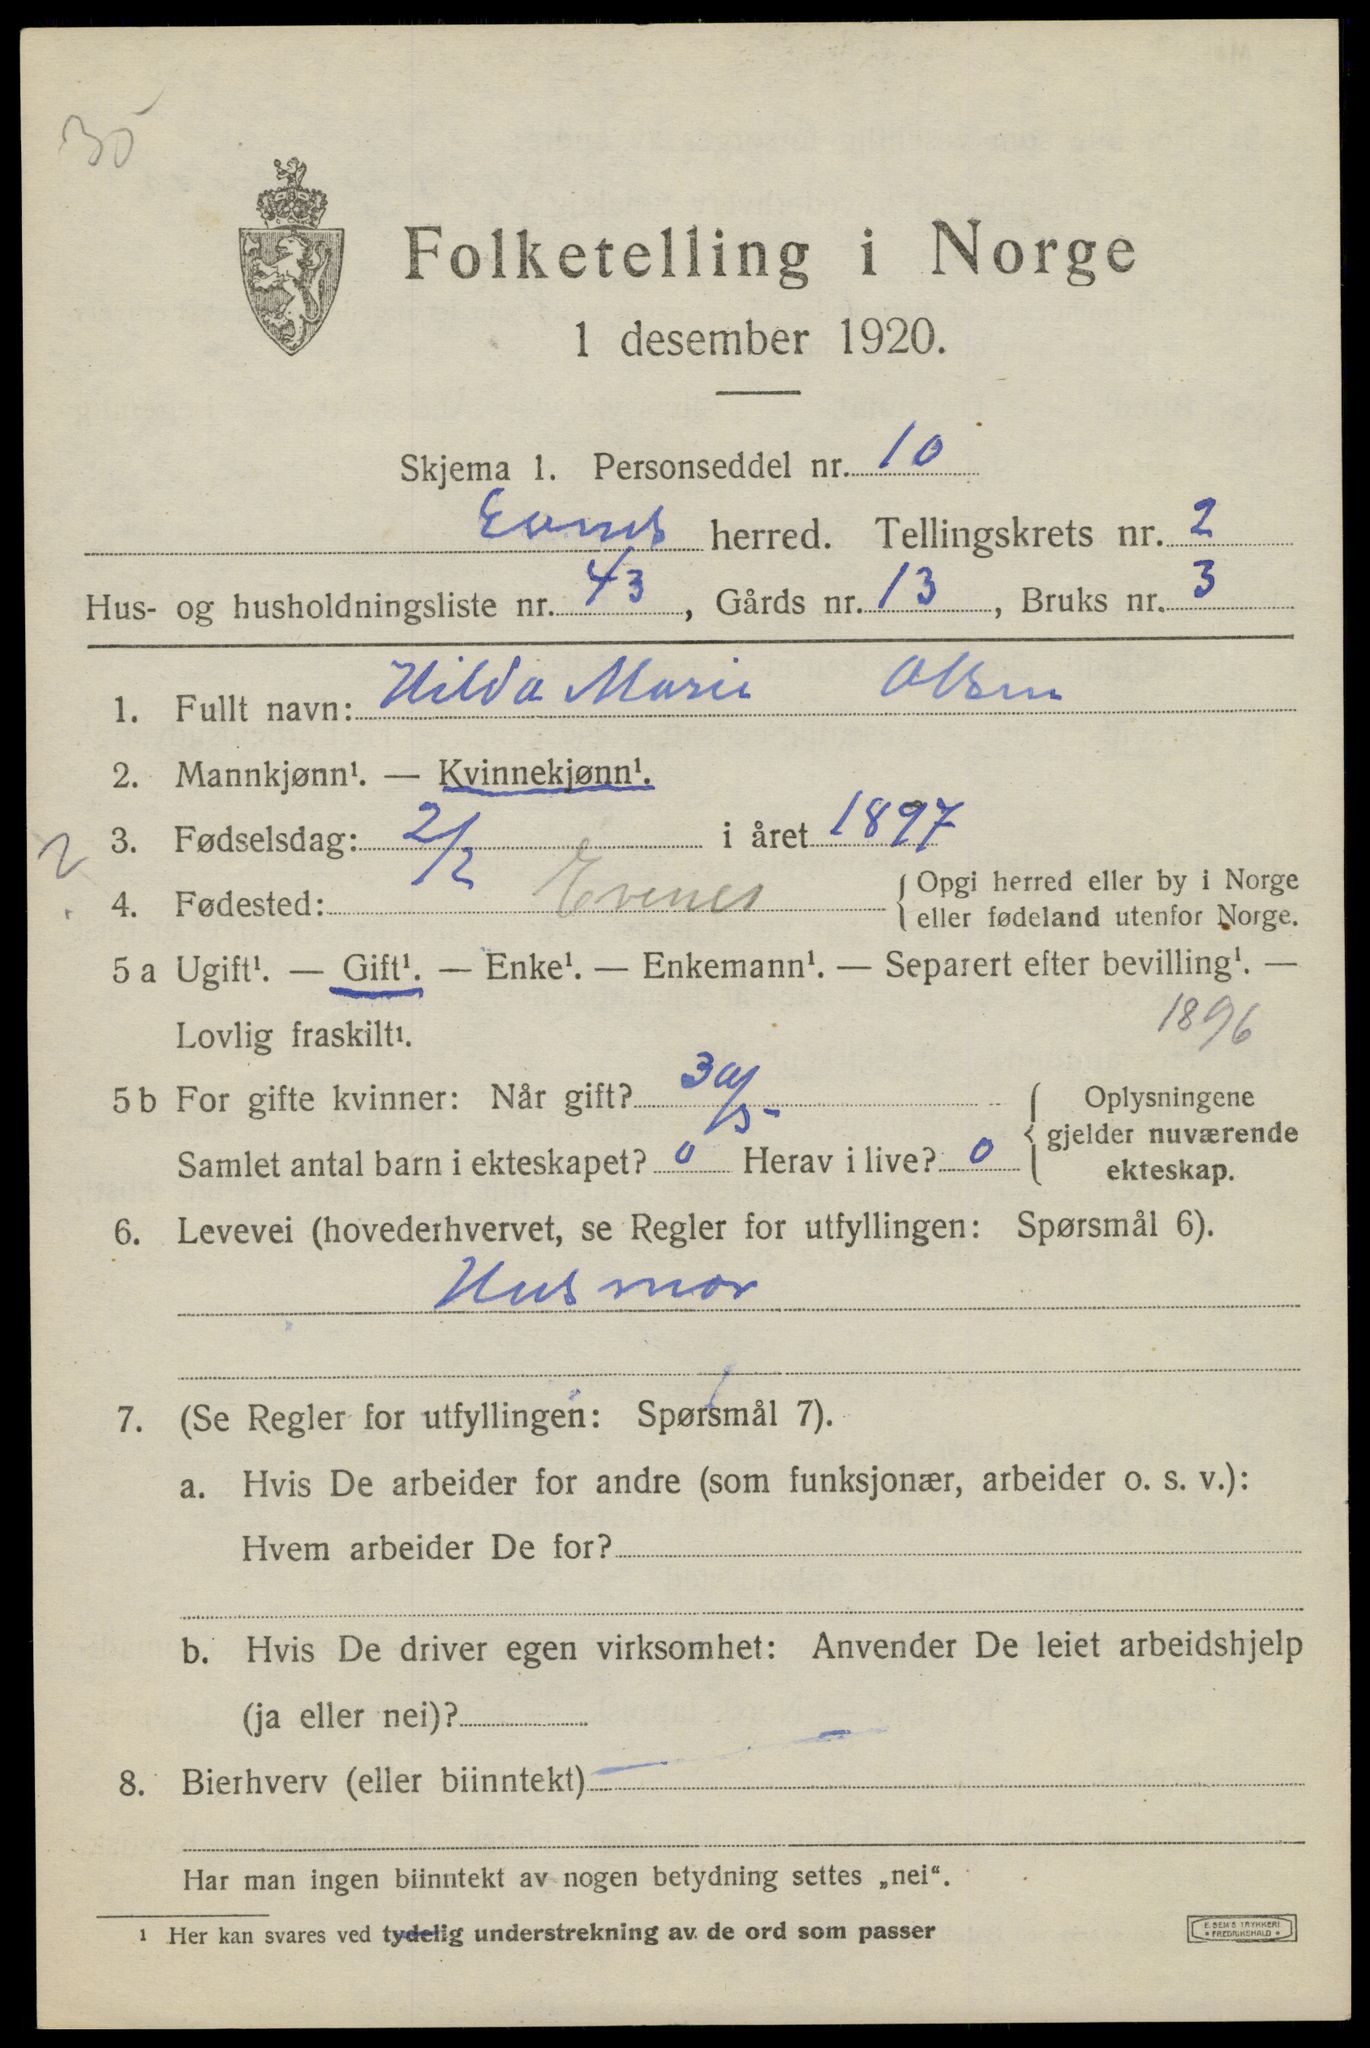 30
Folketelling i Norge
1 desember 1920.
Skjema 1. Personseddel nr. 10
Evenes herred. Tellingskrets nr. 2
Hus- og husholdningsliste nr. 43, Gårds nr. 13, Bruks nr. 3
1. Fullt navn: Hilda Marie Olsen
2. Mannkjønn¹. — Kvinnekjønn¹.
2 3. Fødselsdag: 2/2 i året 1897
4. Fødested: Evenes { Opgi herred eller by i Norge
eller fødeland utenfor Norge.
5 a Ugift¹. — Gift¹. — Enke¹. — Enkemann¹. — Separert efter bevilling¹. —
Lovlig fraskilt¹.
1896
5 b For gifte kvinner: Når gift? 30/5- { Oplysningene
gjelder nuværende
Samlet antal barn i ekteskapet? 0 Herav i live? 0
ekteskap.
6. Levevei (hovederhvervet, se Regler for utfyllingen: Spørsmål 6).
Husmor
7. (Se Regler for utfyllingen: Spørsmål 7).
a. Hvis De arbeider for andre (som funksjonær, arbeider o. s. v.):
Hvem arbeider De for?
b. Hvis De driver egen virksomhet: Anvender De leiet arbeidshjelp
(ja eller nei)?
8. Bierhverv (eller biinntekt)
Har man ingen biinntekt av nogen betydning settes „nei“.
¹ Her kan svares ved tydelig understrekning av de ord som passer
E. SEM'S TRYKKERI
* FREDRIKSHALD *